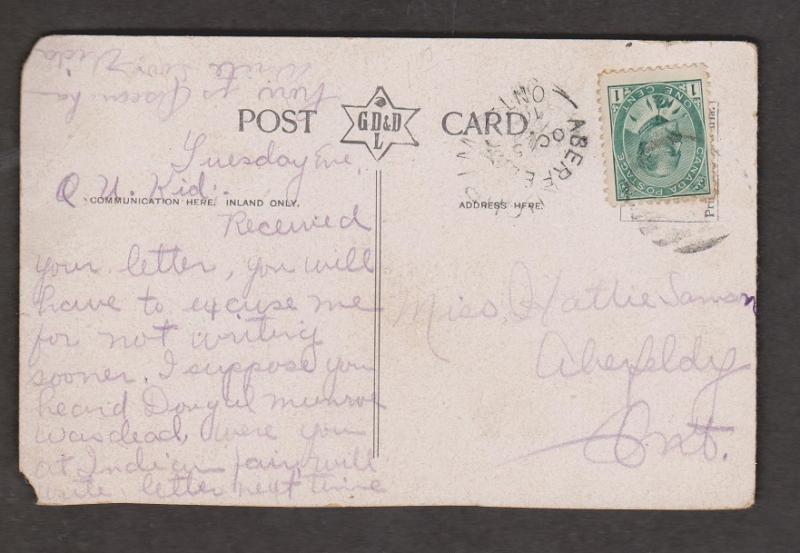 POST CARD
G D & D
L
COMMUNICATION HERE, INLAND ONLY.
ADDRESS HERE.
CANADA POSTAGE
ONE CENT
1 1
ONT
OC 5
Tuesday Eve,
O U. Kid.
Received
your letter, you will
have to excuse me
for not writing
sooner. I suppose you
heard Dougal Munroe
was dead, were you
at Indian fair, will
write letter next time
write soon
Miss, Hattie
Aberfeldy
Ont.